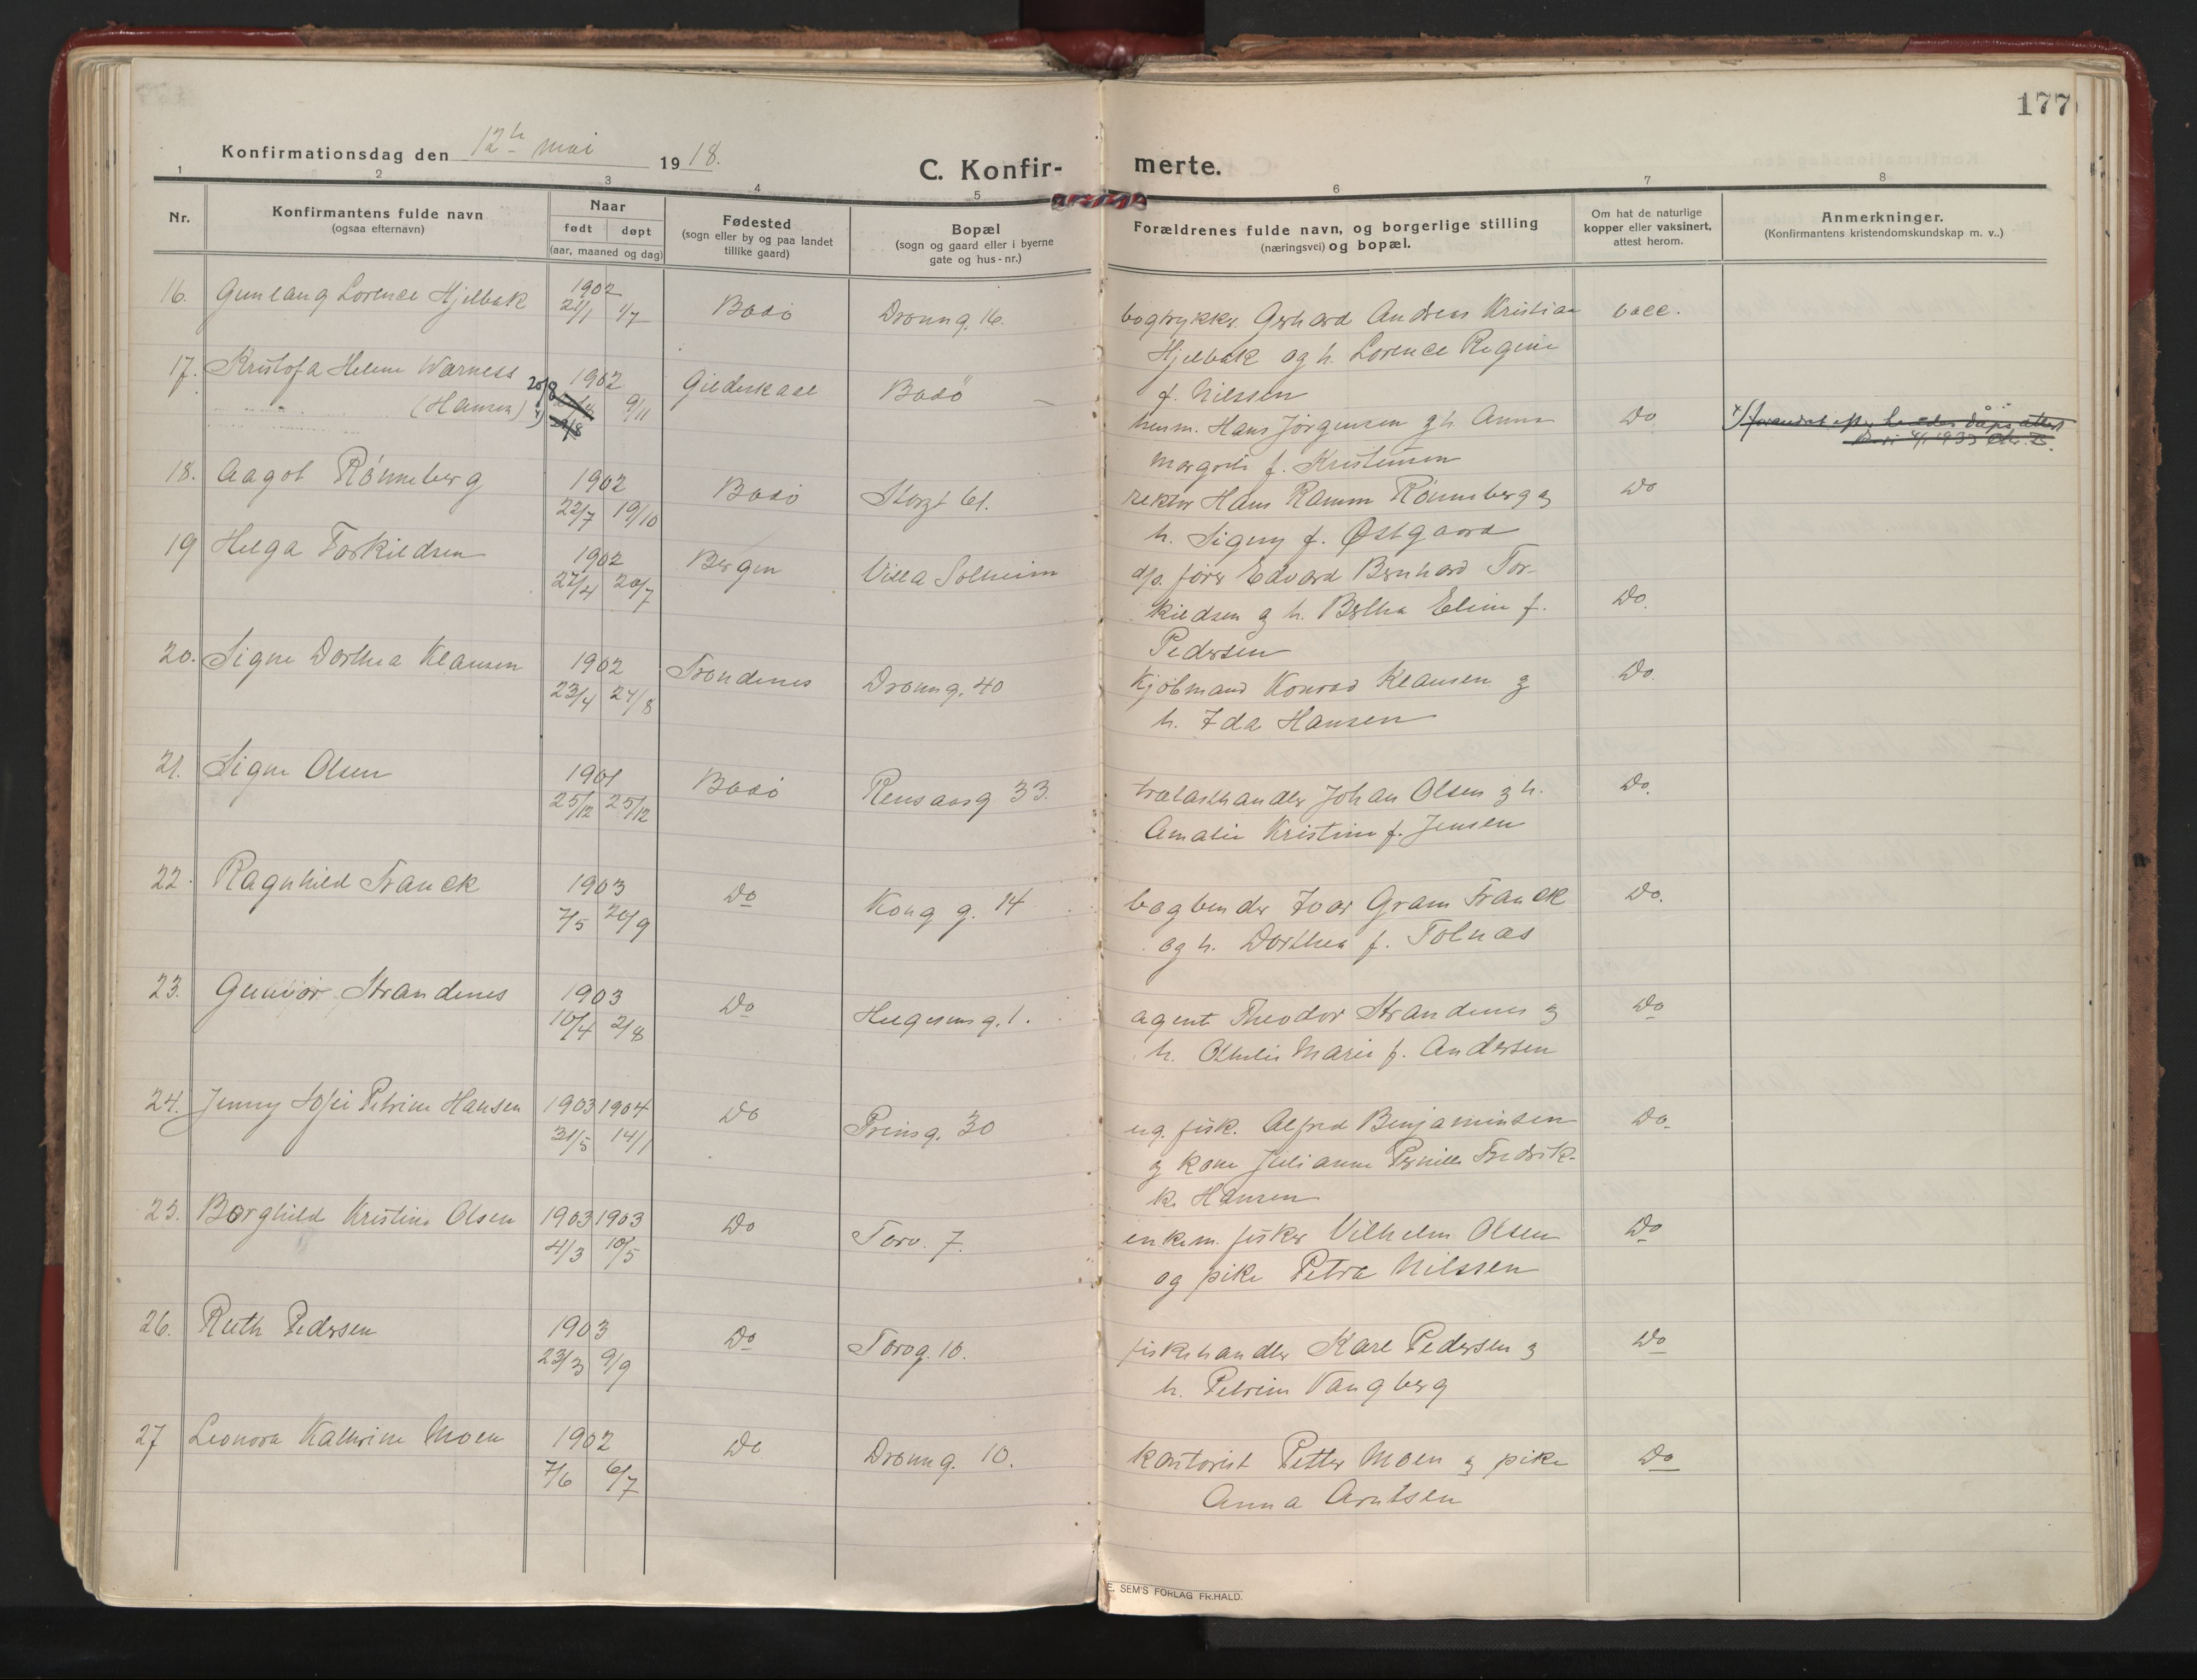 177
Konfirmationsdag den 12te mai 1918.
C. Konfirmerte.
1 2 3 4 5 6 7 8
Nr.
Konfirmantens fulde navn
(ogsaa efternavn)
Naar
født døpt
(aar, maaned og dag)
Fødested
(sogn eller by og paa landet
tillike gaard)
Bopæl
(sogn og gaard eller i byerne
gate og hus-nr.)
Forældrenes fulde navn, og borgerlige stilling
(næringsvei) og bopæl.
Om hat de naturlige
kopper eller vaksinert,
attest herom.
Anmerkninger.
(Konfirmantens kristendomskundskap m. v..)
16. Gunlaug Lorence Hjelbak 1902 21/1 1/7 Bodø Dronng. 16. bogtrykker Gerhard Andreas Kristian vacc.
Hjelbak og h. Lorence Regine
f. Nilssen
17. Kristofa Helene Warness 1902 20/8 9/11 Gildeskaal Bodö
(Hansen)
husm. Hans Jørgensen og h. Anna Do
Margrete f. Kristensen
18. Aagot Rønneberg 1902 22/7 19/10 Bodø Storgt 61. rektor Hans Ramm Rønneberg og Do
h. Signy f. Østgaard
19 Helga Torkildsen 1902 27/4 20/7 Bergen Villa Solheim dp. fører Edvard Bernhard Tor-
kildsen og h. Bertha Eline f. Do.
Pedersen
20. Signe Dorthea Klausen 1902 23/4 24/8 Trondenes Dronng. 40 Kjøbmand Konrad Klausen og Do.
h. Ida Hansen
21. Signe Olsen 1901 25/12 25/12 Bodø Rensaasg 33. trælasthandler Johan Olsen og h. Do.
Amalie Kristine f. Jensen
22. Ragnhild Franck 1903 7/5 20/9 Do Kong g. 14 bogbinder Ivar Gram Franck Do.
og h. Dorthea f. Tolnæs
23. Gunvor Strandenes 1903 10/4 2/8 Do Helgesensg. 1. agent Theodor Strandenes og Do
h. Othilie Marie f. Andersen
24. Jenny Sofie Petrine Hansen 1903 1904 31/5 14/1 Do Prinsg. 30 ug. fisk. Alfred Benjaminsen Do.
og kone Julianne Pernille Fredrik-
ke Hansen
25. Borghild Kristine Olsen 1903 1903 4/3 10/5 Do Torv. 7. enkem. fisker Vilhelm Olsen Do
og pike Petra Nilssen
26. Ruth Pedersen 1903 23/3 9/9 Do Torvg. 10. fiskehandler Karl Pedersen og Do
h. Petrine Vangberg
27 Leonora Kathrine Moen 1902 7/6 6/7 Do Dronng. 10. kontorist Petter Moen og pike Do
Anna Arntsen
E. SEM'S FORLAG FR.HALD.